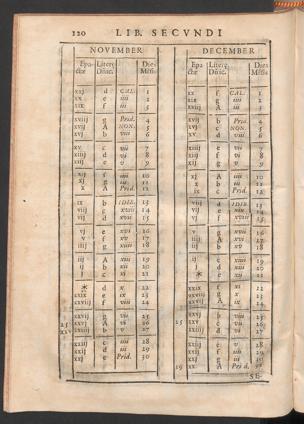 120 LIB. SECVNDI
NOVEMBER
Epactæ Literę Dńic. Dies Mēsis
xxj d CAL. 1
xx e iiij 2
xix f iij 3
xviij g Prid. 4
xvij A NON. 5
xvj b viij 6
xv c vij 7
xiiij d vj 8
xiij e v 9
xij f iiij 10
xj g iij 11
x A Prid. 12
ix b IDIB. 13
viij c xviij 14
vij d xvij 15
vj e xvj 16
v f xv 17
iiij g xiiij 18
iij A xiij 19
ij b xij 20
j c xj 21
* d x 22
xxix e ix 23
xxviij f viij 24
xxvij g vij 25
25 xxvj A vj 26
xxv xxiiij b v 27
xxiij c iiij 28
xxij d iij 29
xxj e Prid. 30
DECEMBER
Epactæ Literę Dńic. Dies Mēsis
xx f CAL. 1
xix g iiij 2
xviij A iij 3
xvij b Prid. 4
xvj c NON. 5
xv d viij 6
xiiij e vij 7
xiij f vj 8
xij g v 9
xj A iiij 10
x b iij 11
ix c Prid. 12
viij d IDIB. 13
vij e xix 14
vj f xviij 15
v g xvij 16
iiij A xvj 17
iij b xv 18
ij c xiiij 19
j d xiij 20
* e xij 21
xxix f xj 22
xxviij g x 23
xxvij A ix 24
xxvj b viij 25
25 xxv c vij 26
xxiiij d vj 27
xxiij e v 28
xxij f iiij 29
xxj g iij 30
19 xx A Prid. 31